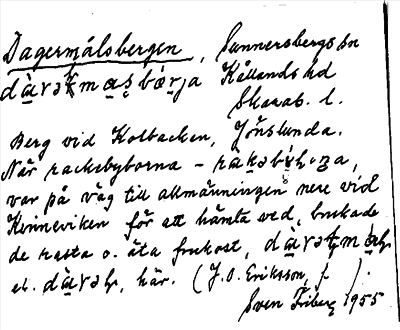 Dagermålsbergen, Sunnersbergs sn
Kållands hd
Skarab. l.
Berg vid Kolbacken, Jönslunda.
När rackebyborna –
var på väg till allmänningen nere vid
Kinneviken för att hämta ved, brukade
de rasta o. äta frukost,
el. här. (J. O. Eriksson, f. ).
Sven Friberg 1955